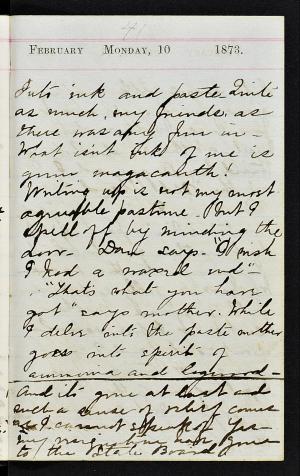 41
FEBRUARY MONDAY, 10 1873.
Into ink and paste. Quite
as much, my friends, as
there was any fun in -
What isn't ink of me is
gum magacanth!
Writing up is not my most
agreeable pastime. But I
spell off by minding the
door - Dan says - "I wish
I had a
"That's what you have
got" says mother. While
I delve into the paste mother
goes into spirit of
ammonia and logwood -
And it's gone at last and
such a sense of relief comes
as I cannot speak of. Yes -
now gone
to the State Board